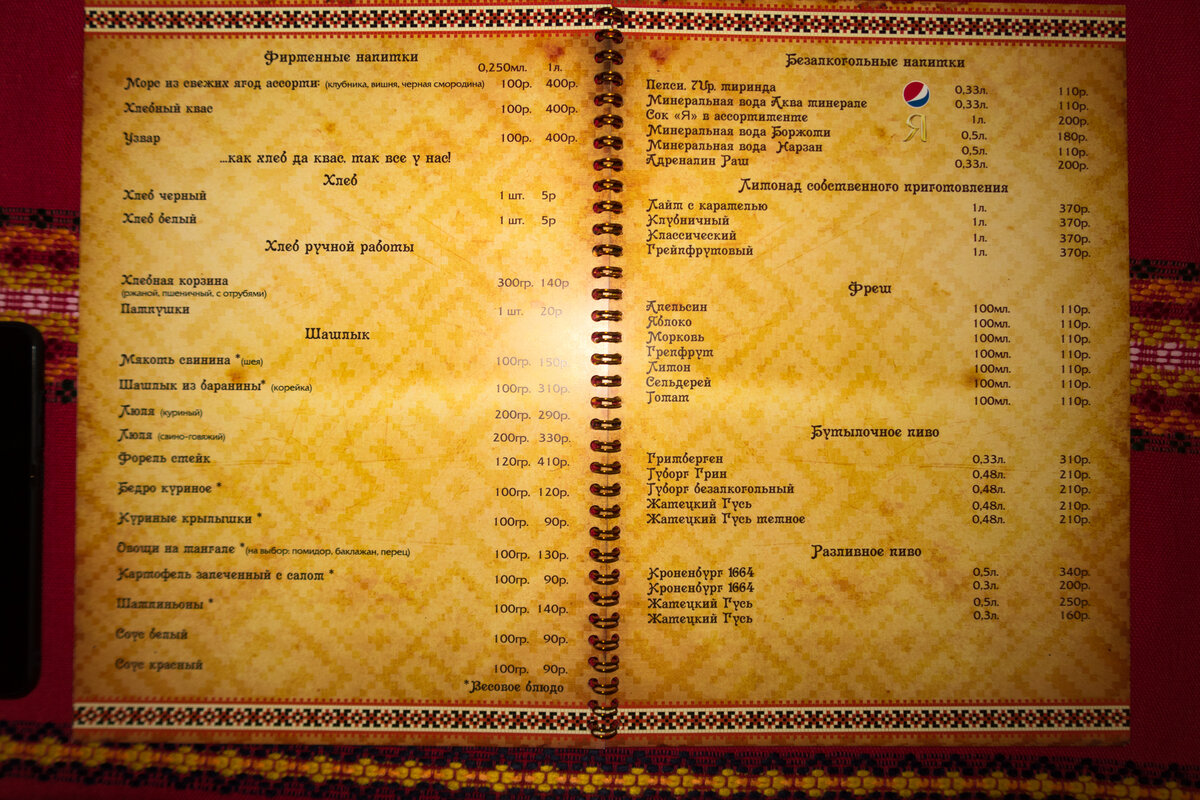 Фирменные напитки
0,250мл. 1л.
Морс из свежих ягод ассорти: (клубника, вишня, черная смородина) 100р. 400р.
Хлебный квас 100р. 400р.
Узвар 100р. 400р.
...как хлеб да квас, так все у нас!
Хлеб
Хлеб черный 1 шт. 5р
Хлеб белый 1 шт. 5р
Хлеб ручной работы
Хлебная корзина 300гр. 140р
(ржаной, пшеничный, с отрубями)
Пампушки 1 шт. 20р
Шашлык
Мякоть свинина * (шея) 100гр. 150р.
Шашлык из баранины* (корейка) 100гр. 310р.
Люля (куриный) 200гр. 290р.
Люля (свино-говяжий) 200гр. 330р.
Форель стейк 120гр. 410р.
Бедро куриное * 100гр. 120р.
Куриные крылышки * 100гр. 90р.
Овощи на мангале * (на выбор: помидор, баклажан, перец) 100гр. 130р.
Картофель запеченный с салом * 100гр. 90р.
Шампиньоны * 100гр. 140р.
Соус белый 100гр. 90р.
Соус красный 100гр. 90р.
*Весовое блюдо
Безалкогольные напитки
Пепси, 7Up, миринда 0,33л. 110р.
Минеральная вода Аква минерале 0,33л. 110р.
Сок «Я» в ассортименте 1л. 200р.
Я
Минеральная вода Боржоми 0,5л. 180р.
Минеральная вода Нарзан 0,5л. 110р.
Адреналин Раш 0,33л. 200р.
Лимонад собственного приготовления
Лайм с карамелью 1л. 370р.
Клубничный 1л. 370р.
Классический 1л. 370р.
Грейпфрутовый 1л. 370р.
Фреш
Апельсин 100мл. 110р.
Яблоко 100мл. 110р.
Морковь 100мл. 110р.
Грепфрут 100мл. 110р.
Лимон 100мл. 110р.
Сельдерей 100мл. 110р.
Томат 100мл. 110р.
Бутылочное пиво
Гримберген 0,33л. 310р.
Туборг Грин 0,48л. 210р.
Туборг безалкогольный 0,48л. 210р.
Жатецкий Гусь 0,48л. 210р.
Жатецкий Гусь темное 0,48л. 210р.
Разливное пиво
Кроненбург 1664 0,5л. 340р.
Кроненбург 1664 0,3л. 200р.
Жатецкий Гусь 0,5л. 250р.
Жатецкий Гусь 0,3л. 160р.